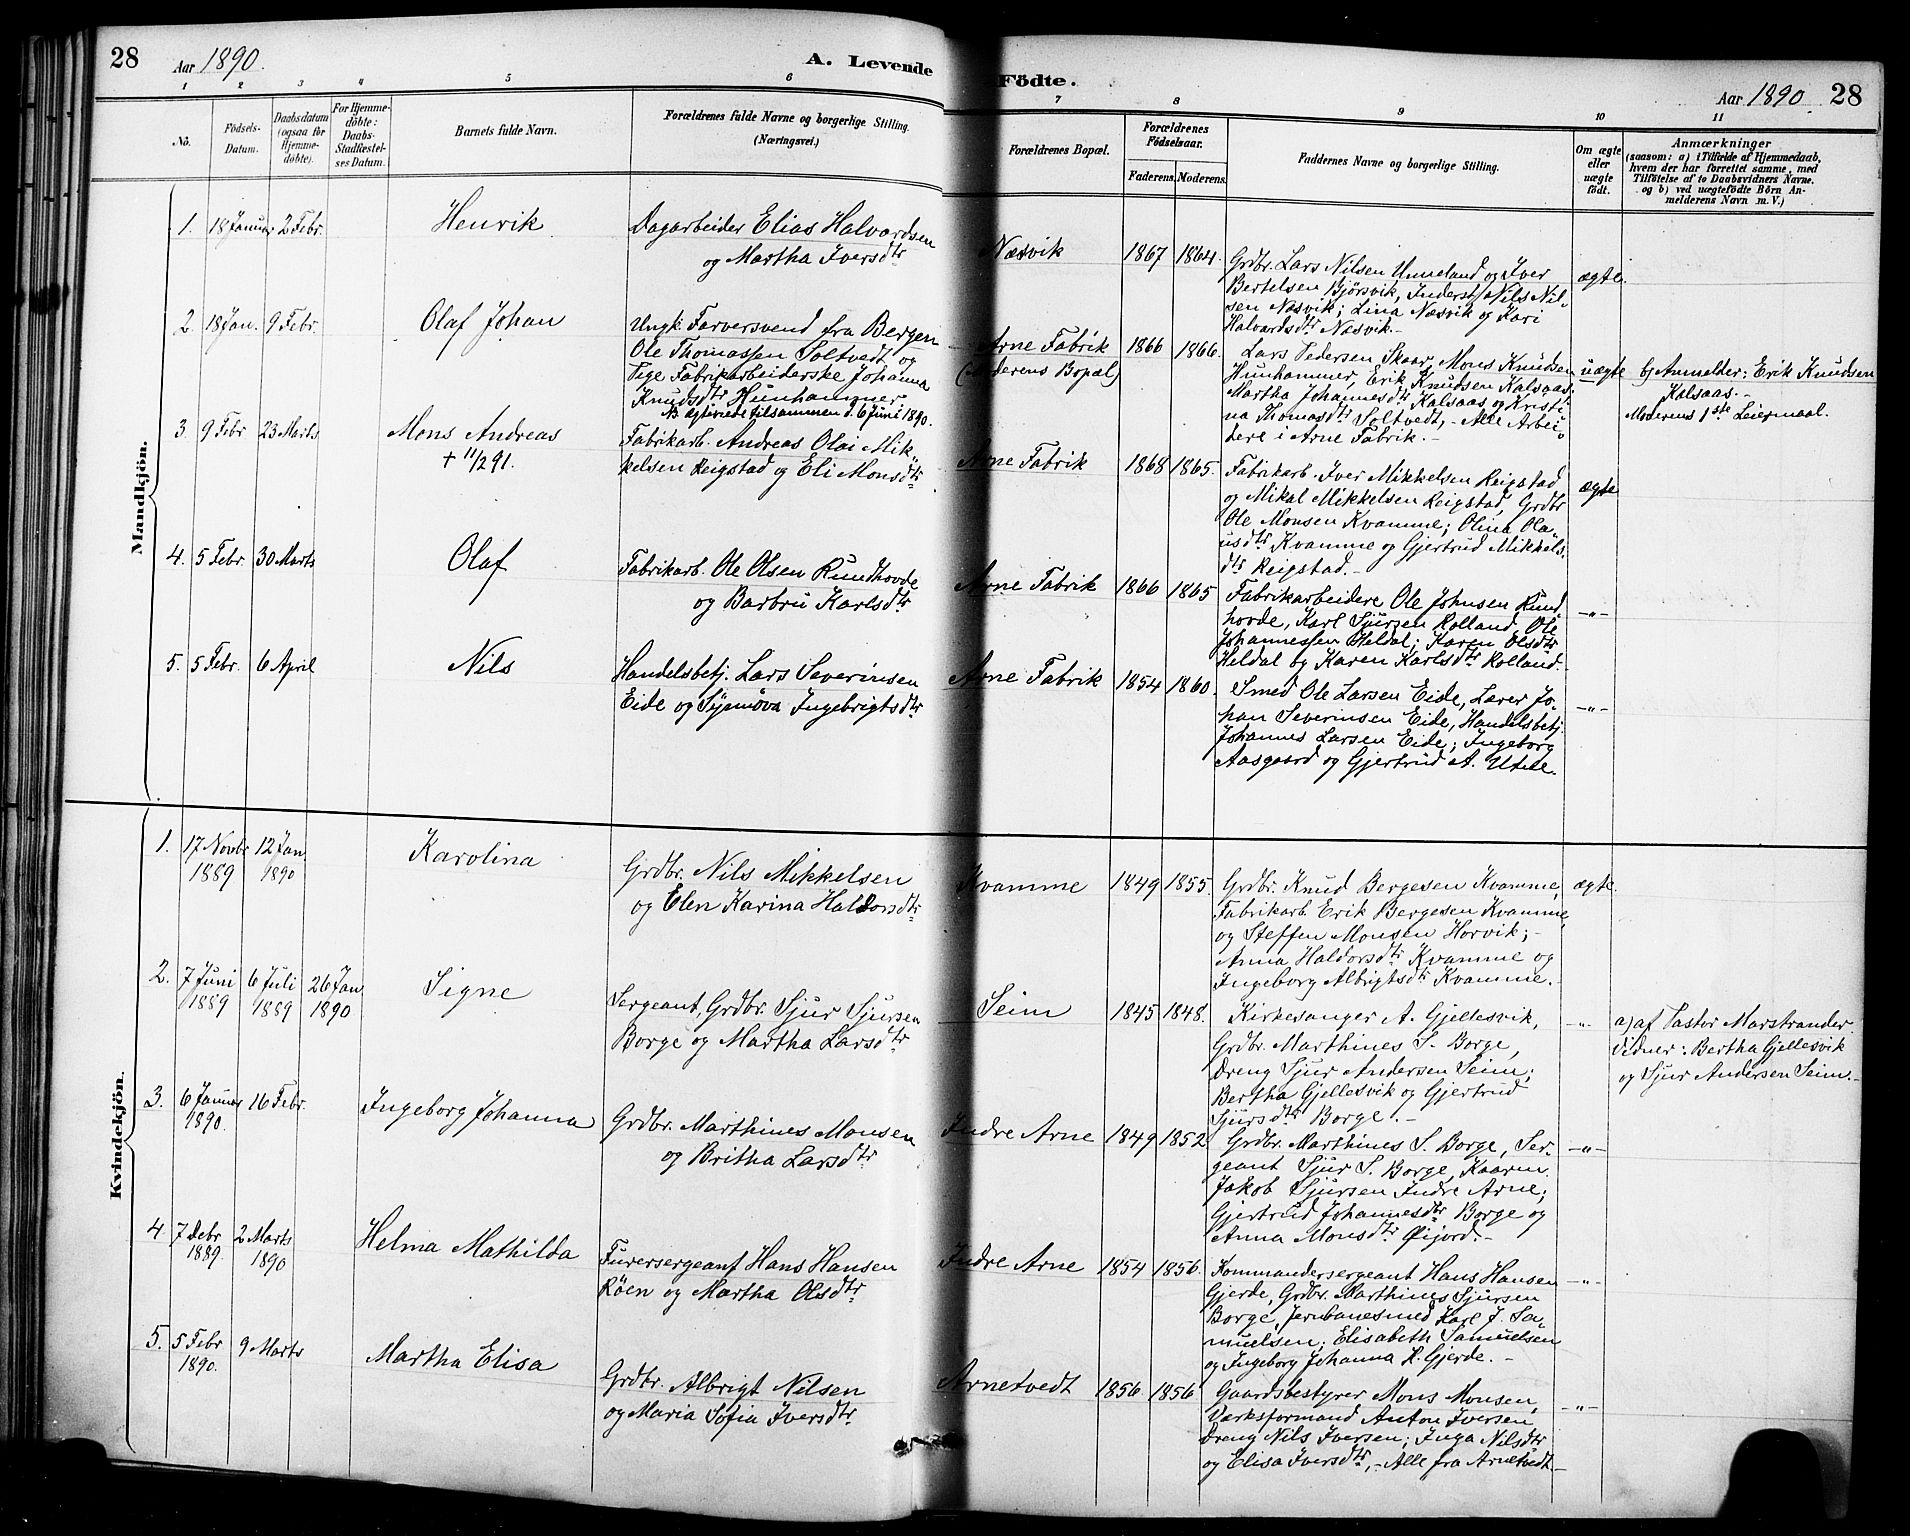 28 Aar 1890. A. Levende
Födte. Aar 1890 28
1 2 3 4 5 6
7 8 9 10 11
No.
Födsels-
Datum.
Daabsdatum
(ogsaa for
Hjemme-
døbte).
For Hjemme-
døbte:
Daabs-
Stadfæstel-
ses Datum.
Barnets fulde Navn.
Forældrenes fulde Navne og borgerlige Stilling.
(Næringsvei.)
Forældrenes Bopæl.
Forældrenes
Födselsaar.
Faderens. Moderens.
Faddernes Navne og borgerlige Stilling.
Om ægte
eller
uægte
født.
Anmærkninger
(saasom: a) i Tilfælde af Hjemmedaab,
hvem der har forrettet samme, med
Tilføielse af to Daabsvidners Navne,
og b) ved uægtefödte Börn An-
melderens Navn m. V.)
Mandkjön.
1. 18 Januar 2 Febr. Henrik
Dagarbeider Elias Halvardsen
og Martha Iversdtr
Næsvik 1867 1864.
Grdbr. Lars Nilsen Unneland og Iver
Bertelsen Bjørsvik, Inderst Nils Nil-
sen Næsvik; Lina Næsvik og Kari
Halvardsdtr Næsvik.-
ægte.
2. 18 Jan. 9 Febr. Olaf Johan
Ungk. Farversvend fra Bergen
Ole Thomassen Soltvedt og
Pige Fabrikarbeiderske Johanna
Knudsdtr Hunhammer
NB. ægteviede tilsammen d. 6 Juni 1890.
Arne Fabrik
(Moderens Bopæl)
1866 1866.
Lars Pedersen Skaar, Mons Knudsen
Hunhammer, Erik Knudsen Kalsaas
Martha Johannesdtr Kalsaas og Kristi-
na Thomasdtr Soltvedt, - Alle Arbei-
dere i Arne Fabrik.-
uægte
b) Anmelder: Erik Knudsen
Kalsaas.-
Moderens 1ste Leiermaal.
3. 9 Febr 23 Marts Mons Andreas
+ 11/2 91.
Fabrikarb. Andreas Olai Mik-
kelsen Reigstad og Eli Monsdtr
Arne Fabrik 1868 1865.
Fabrikarb. Iver Mikkelsen Reigstad
og Mikal Mikkelsen Reigstad, Grdbr
Ole Monsen Kvamme; Olina Ola-
usdtr Kvamme og Gjertrud Mikkels-
dtr Reigstad.-
ægte
4. 5 Febr 30 Marts Olaf
Fabrikarb. Ole Olsen Rundhovde
og Barbru Karlsdtr
Arne Fabrik 1866 1865
Fabrikarbeidere Ole Johnsen Rund-
hovde, Karl Sjursen Rolland, Ole
Johannessen Heldal; Karen Olsdtr
Heldal og Karen Karlsdtr Rolland.
-"-
5. 5 Febr. 6 April Nils
Handelsbetj. Lars Severinsen
Eide og Synnøva Ingebrigtsdtr
Arne Fabrik 1854 1860.
Smed Ole Larsen Eide, Lærer Jo-
han Severinsen Eide, Handelsbetj.
Johannes Larsen Eide; Ingeborg
Aasgaard og Gjertrud A. Utne.
-"-
Kvindekjön.
1. 17 Novbr 12 Jan Karolina
1889 1890
Grdbr. Nils Mikkelsen
og Elen Karina Haldorsdtr
Kvamme 1849 1855.
Grdbr. Knud Bergesen Kvamme,
Fabrikarb. Erik Bergesen Kvamme,
og Steffen Monsen Horvik;-
Anna Haldorsdtr Kvamme og
Ingeborg Albrigtsdtr Kvamme.-
ægte.
2. 7 Juni 6 Juli 26 Jan Signe
1889 1889 1890
Sergeant, Grdbr. Sjur Sjursen
Borge og Martha Larsdtr
Seim 1845 1848.
Kirkesanger A. Gjellesvik,
Grdbr. Marthines S. Borge,
Dreng Sjur Andersen Seim;
Bertha Gjellesvik og Gjertrud
Sjursdtr Borge.-
-"-
a) af Pastor Marstrander.
Vidner: Bertha Gjellesvik
og Sjur Andersen Seim.-
3. 6 Januar 16 Febr. Ingeborg Johanna
1890.
Grdbr. Marthines Monsen
og Britha Larsdtr
Indre Arne 1849 1852
Grdbr. Marthines S. Borge, Ser-
geant Sjur S. Borge, Kaaren
Jakob Sjursen Indre Arne;
Gjertrud Johannesdtr Borge og
Anna Monsdtr Øijord.-
-"-
4 7 Debr 2 Marts Helma Mathilda
1889. 1890
Furersergeant Hans Hansen
Røen og Martha Olsdtr
Indre Arne 1854 1856.
Kommandersergeant Hans Hansen
Gjerde, Grdbr. Marthines Sjursen
Borge, Jernbanesmed Karl J. Sa-
muelsen; Elisabeth Samuelsen
og Ingeborg Johanna H. Gjerde.-
-"-
5. 5 Febr 9 Marts Martha Elisa
1890.
Grdbr. Albrigt Nilsen
og Maria Sofia Iversdtr
Arnetvedt 1856 1856
Gaardsbestyrer Mons Monsen,
Værksformand Anton Iversen
Dreng Nils Iversen; Inga Nilsdtr
og Elisa Iversdtr, - Alle fra Arnetvedt.-
-"-